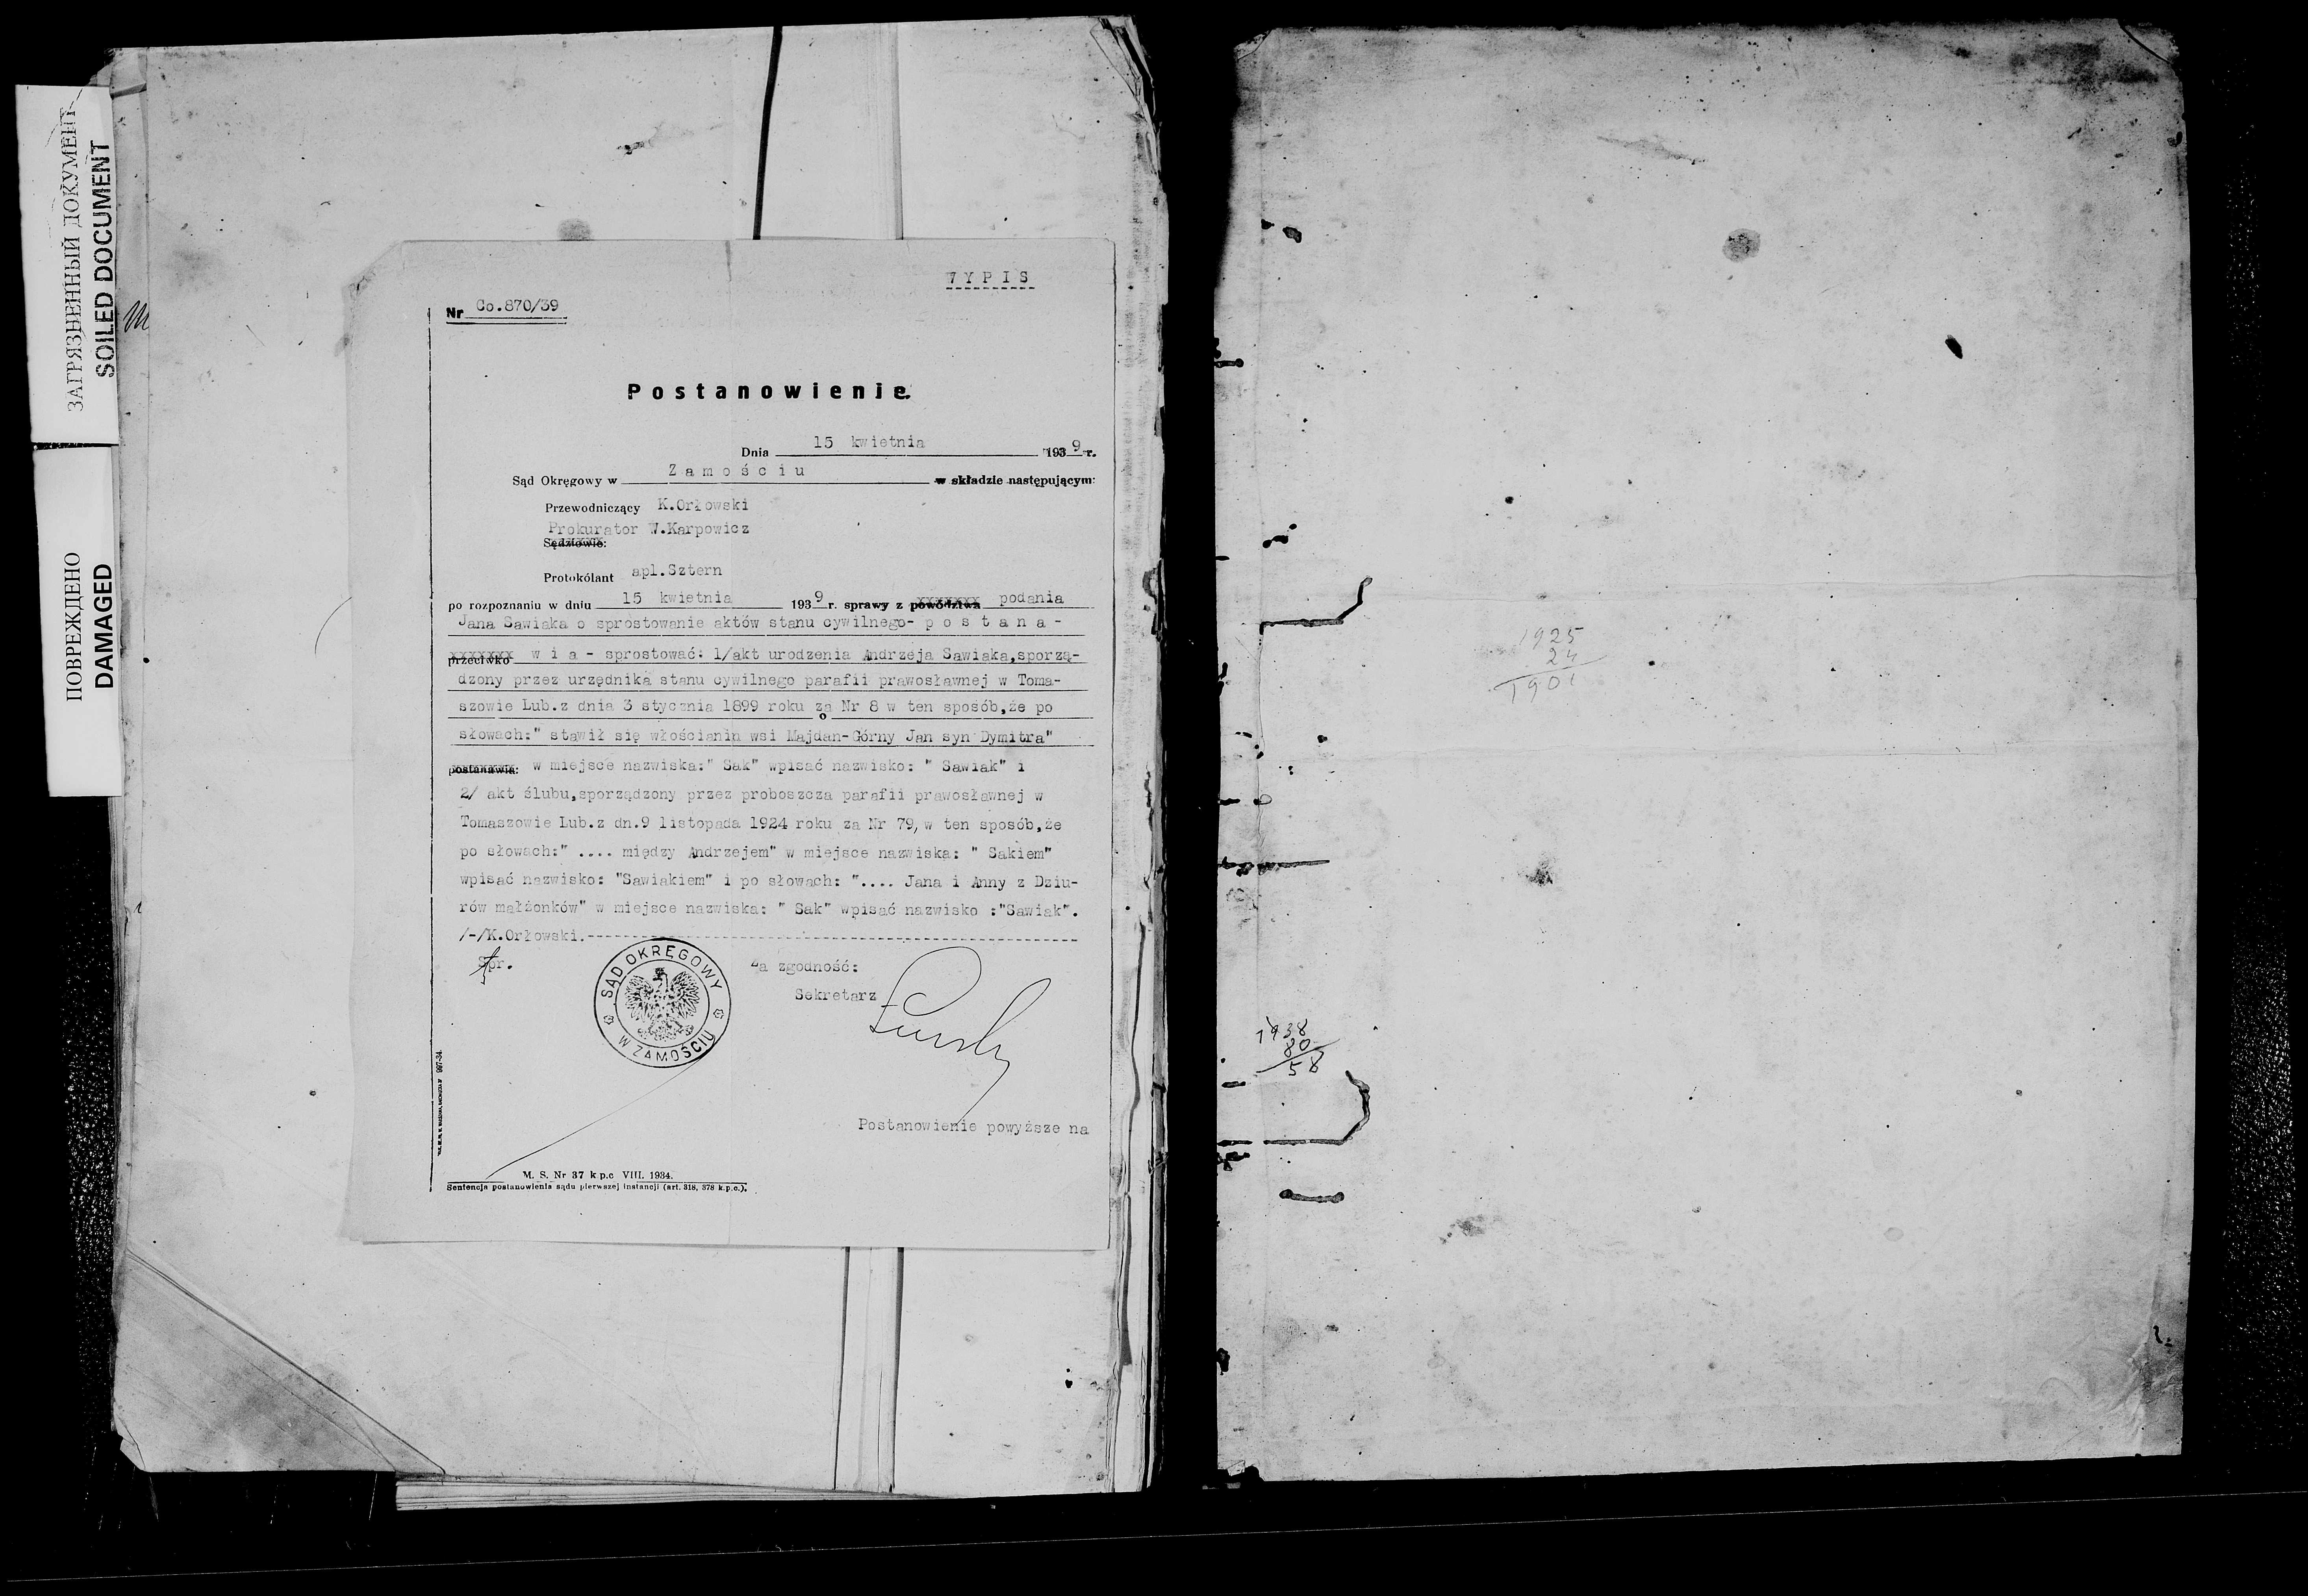 ЗАГРЯЗНЕННЫЙ ДОКУМЕНТ
SOILED DOCUMENT
ПОВРЕЖДЕНО
DAMAGED
WYPIS
Nr Co.870/39
Postanowienie.
Dnia 15 kwietnia 1939 r.
Sąd Okręgowy w Zamościu w składzie następującym:
Przewodniczący K.Orłowski
Prokurator W.Karpowicz
Sędziowie:
Protokólant apl.Sztern
po rozpoznaniu w dniu 15 kwietnia 1939 r. sprawy z powództwa podania
Jana Sawiaka o sprostowanie aktów stanu cywilnego- p o s t a n a -
przeciwko w i a - sprostować: 1/akt urodzenia Andrzeja Sawiaka,sporzą-
dzony przez urzędnika stanu cywilnego parafii prawosławnej w Toma-
szowie Lub.z dnia 3 stycznia 1899 roku za Nr 8 w ten sposób,że po
o
słowach:" stawił się włościanin wsi Majdan-Górny Jan syn Dymitra"
postanawia: w miejsce nazwiska:" Sak" wpisać nazwisko: " Sawiak" i
2/ akt ślubu,sporządzony przez proboszcza parafii prawosławnej w
Tomaszowie Lub.z dn.9 listopada 1924 roku za Nr 79,w ten sposób,że
po słowach:" .... między Andrzejem" w miejsce nazwiska: " Sakiem"
wpisać nazwisko: "Sawiakiem" i po słowach: ".... Jana i Anny z Dziu-
rów małżonków" w miejsce nazwiska: " Sak" wpisać nazwisko :"Sawiak".
/-/K.Orłowski.
Spr.
SĄD OKRĘGOWY W ZAMOŚCIU
Za zgodność:
Sekretarz
Postanowienie powyższe na
997-34.
M. S. Nr 37 k.p.c VIII. 1934.
Sentencja postanowienia sądu pierwszej instancji (art. 318, 378 k.p.c.).
1925
24
1901
1938
80
58